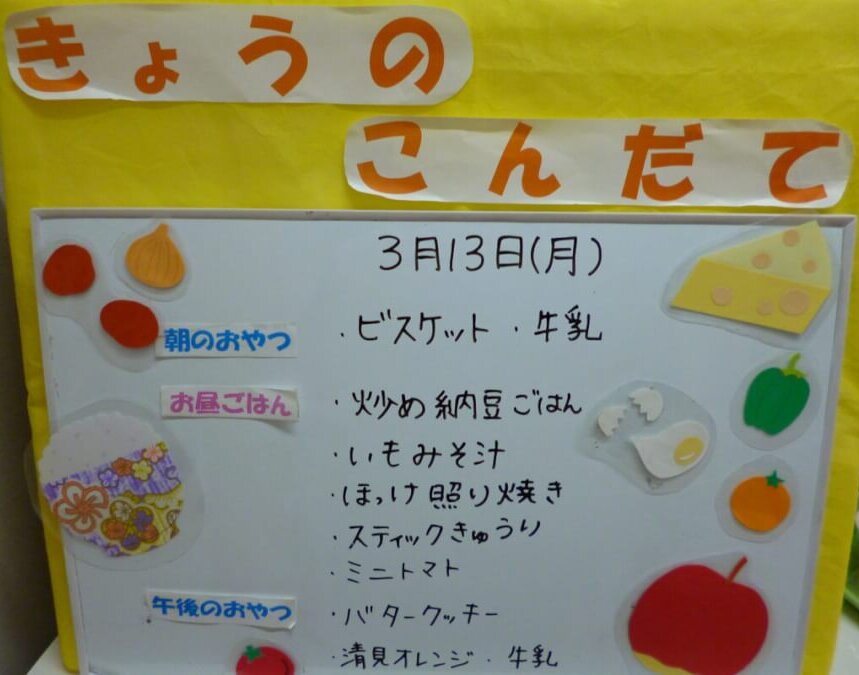 きょうの
こんだて
3月13日(月)
朝のおやつ ・ビスケット ・牛乳
お昼ごはん ・炒め納豆ごはん
・いもみそ汁
・ほっけ照り焼き
・スティックきゅうり
・ミニトマト
午後のおやつ ・バタークッキー
・清見オレンジ ・牛乳